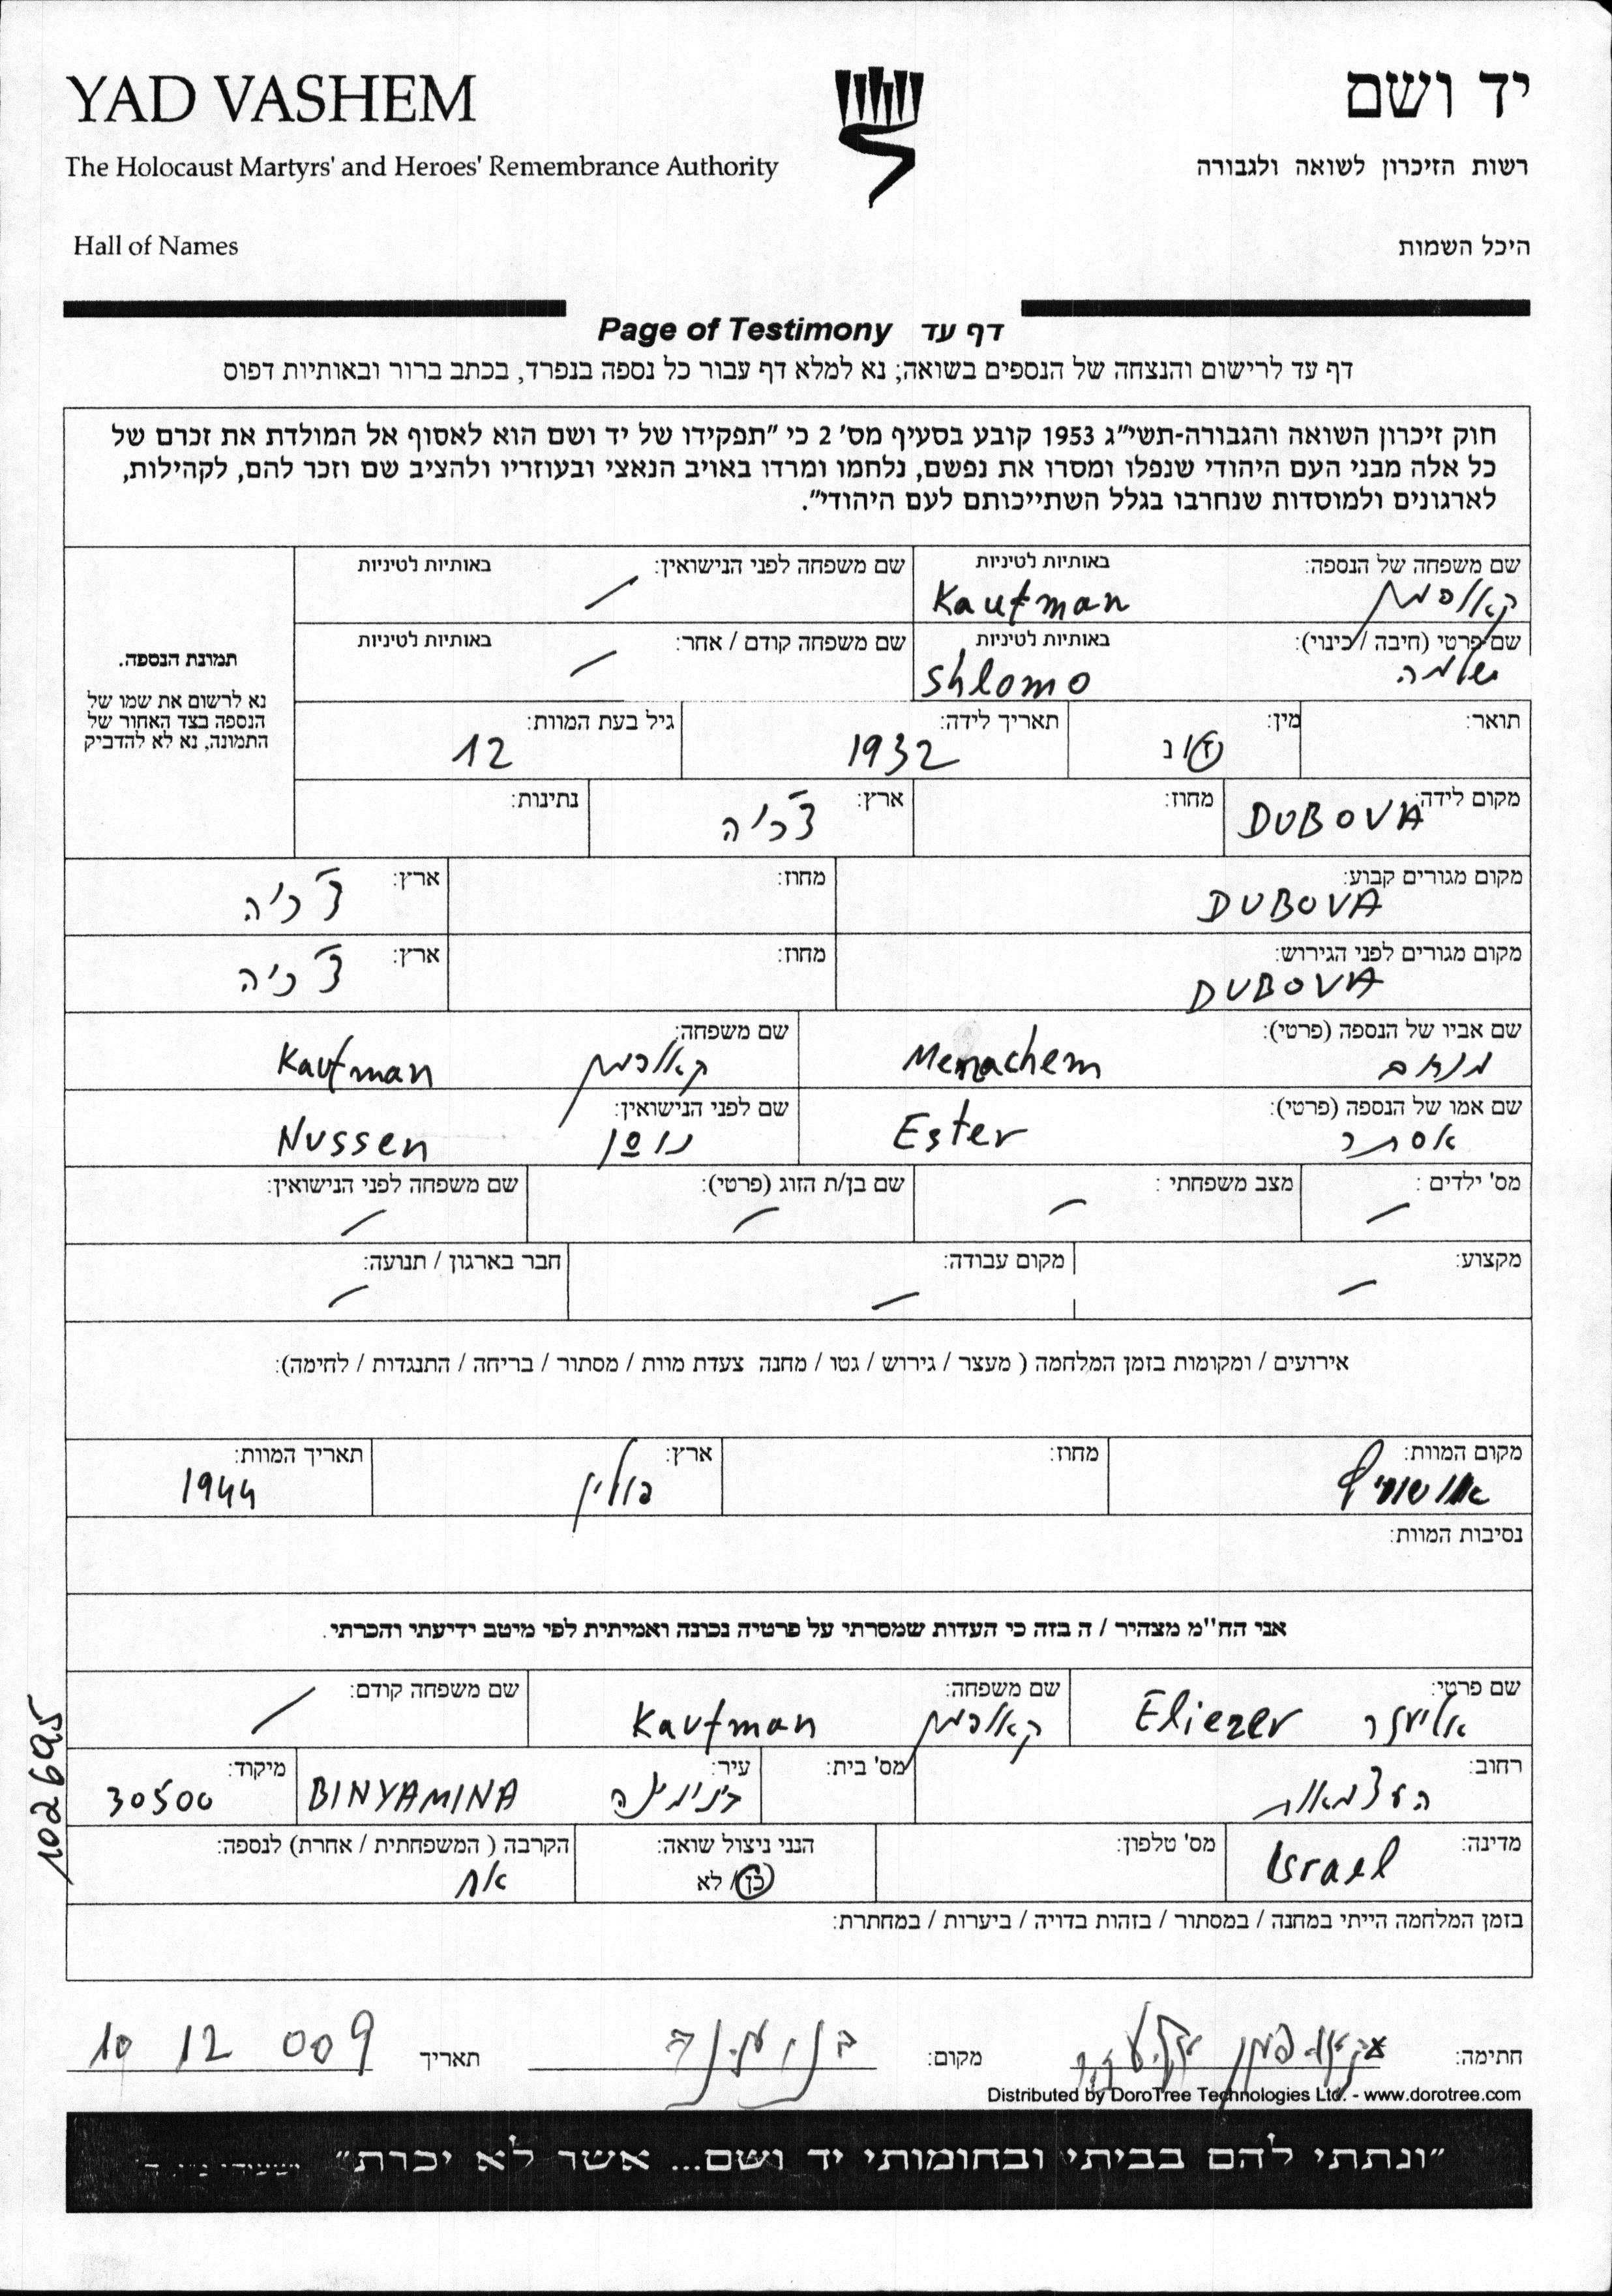 YAD VASHEM
יד ושם
The Holocaust Martyrs' and Heroes' Remembrance Authority
רשות הזיכרון לשואה ולגבורה
Hall of Names
היכל השמות
Page of Testimony דף עד
דף עד לרישום והנצחה של הנספים בשואה; נא למלא דף עבור כל נספה בנפרד, בכתב ברור ובאותיות דפוס
חוק זיכרון השואה והגבורה-תשי"ג 1953 קובע בסעיף מס' 2 כי "תפקידו של יד ושם הוא לאסוף אל המולדת את זכרם של
כל אלה מבני העם היהודי שנפלו ומסרו את נפשם, נלחמו ומרדו באויב הנאצי ובעוזריו ולהציב שם וזכר להם, לקהילות,
לארגונים ולמוסדות שנחרבו בגלל השתייכותם לעם היהודי".
שם משפחה של הנספה: באותיות לטיניות שם משפחה לפני הנישואין: באותיות לטיניות
קאופמן Kaufman /
שם פרטי (חיבה / כינוי): באותיות לטיניות שם משפחה קודם / אחר: באותיות לטיניות
שלמה Shlomo /
תמונת הנספה.
נא לרשום את שמו של
הנספה בצד האחור של
התמונה, נא לא להדביק
תואר: מין: תאריך לידה: גיל בעת המוות:
ז/נ 1932 12
מקום לידה: מחוז: ארץ: נתינות:
DUBOVA צ'כיה
מקום מגורים קבוע: מחוז: ארץ:
DUBOVA צ'כיה
מקום מגורים לפני הגירוש: מחוז: ארץ:
DUBOVA צ'כיה
שם אביו של הנספה (פרטי): שם משפחה:
מנחם Menachem קאופמן Kaufman
שם אמו של הנספה (פרטי): שם לפני הנישואין:
אסתר Ester נוסן Nussen
מס' ילדים : מצב משפחתי : שם בן/ת הזוג (פרטי): שם משפחה לפני הנישואין:
/ / / /
מקצוע: מקום עבודה: חבר בארגון / תנועה:
/ / /
אירועים / ומקומות בזמן המלחמה ( מעצר / גירוש / גטו / מחנה צעדת מוות / מסתור / בריחה / התנגדות / לחימה):
מקום המוות: מחוז: ארץ: תאריך המוות:
אושוויץ פולין 1944
נסיבות המוות:
אני הח"מ מצהיר / ה בזה כי העדות שמסרתי על פרטיה נכונה ואמיתית לפי מיטב ידיעתי והכרתי.
שם פרטי: שם משפחה: שם משפחה קודם:
אליעזר Eliezer קאופמן Kaufman /
רחוב: מס' בית: עיר: מיקוד:
העצמאות בנימינה BINYAMINA 30500
מדינה: מס' טלפון: הנני ניצול שואה: הקרבה ( המשפחתית / אחרת) לנספה:
Israel כן / לא אח
בזמן המלחמה הייתי במחנה / במסתור / בזהות בדויה / ביערות / במחתרת:
102695
חתימה: קאופמן אליעזר מקום: בנימינה תאריך 10 12 009
Distributed by DoroTree Technologies Ltd. - www.dorotree.com
"ונתתי להם בביתי ובחומותי יד ושם... אשר לא יכרת"